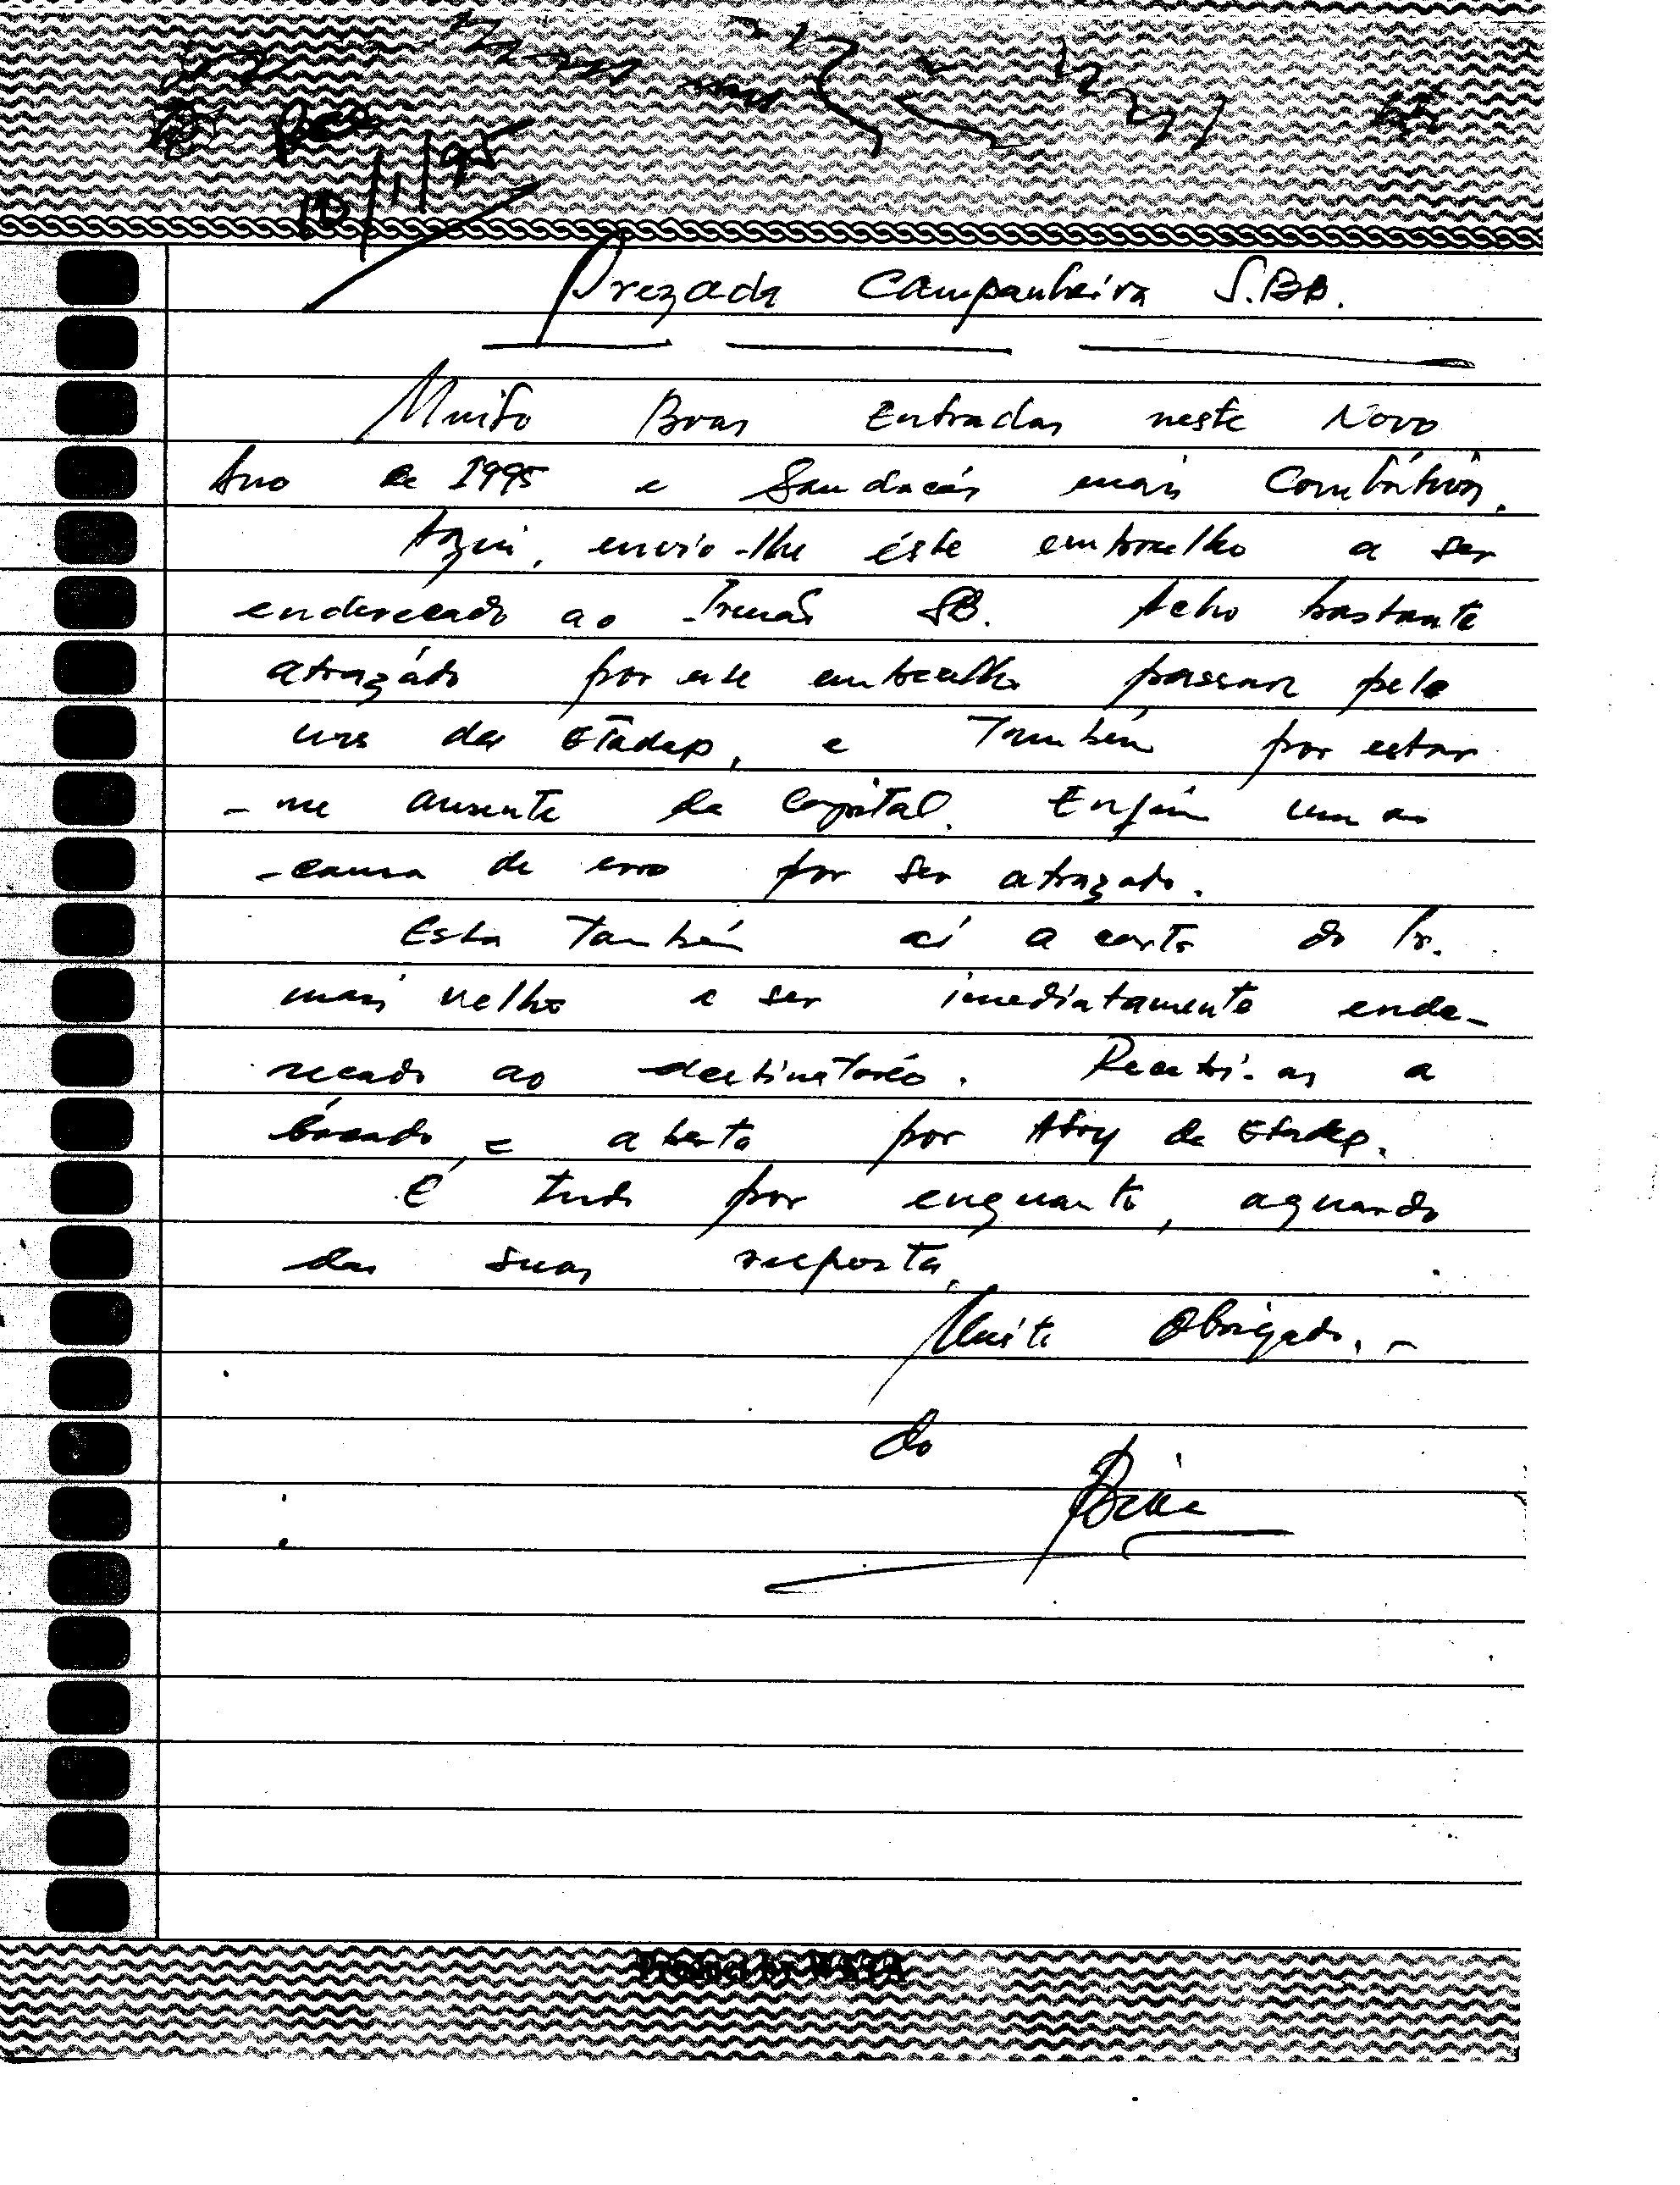 10/1/95
Prezada Companheira S.BB.
Muito Boas Entradas neste Novo
Ano de 1995 e Saudacões mais Combátivas.
Aqui, envio-lhe éste embrulho a ser
enderecado ao Irmão SB. Acho bastante
atrazádo por este embrulho passar pela
da Etadep, e Também por estar
-me ausente da Capital. Enfim uma
-causa de erro por ser atrazado.
Esta Também aí a carta do Ir.
mais velho a ser imediatamente ende-
recado ao destinatário. Recebi-as a
bocado, e aberta por da Etadep.
É tudo por enquanto, aguardo
das suas resposta,
Muito Obrigado. -
do